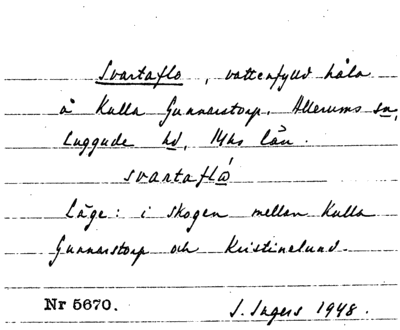 Svartaflo, vattenfylld håla
å Kulla Gunnarstorp, Allerums sn,
Luggude hd, Mhs län.
svartaflǻ
Läge: i skogen mellan Kulla
Gunnarstorp och Kristinelund.
Nr 5670.
S. Ingers 1948.